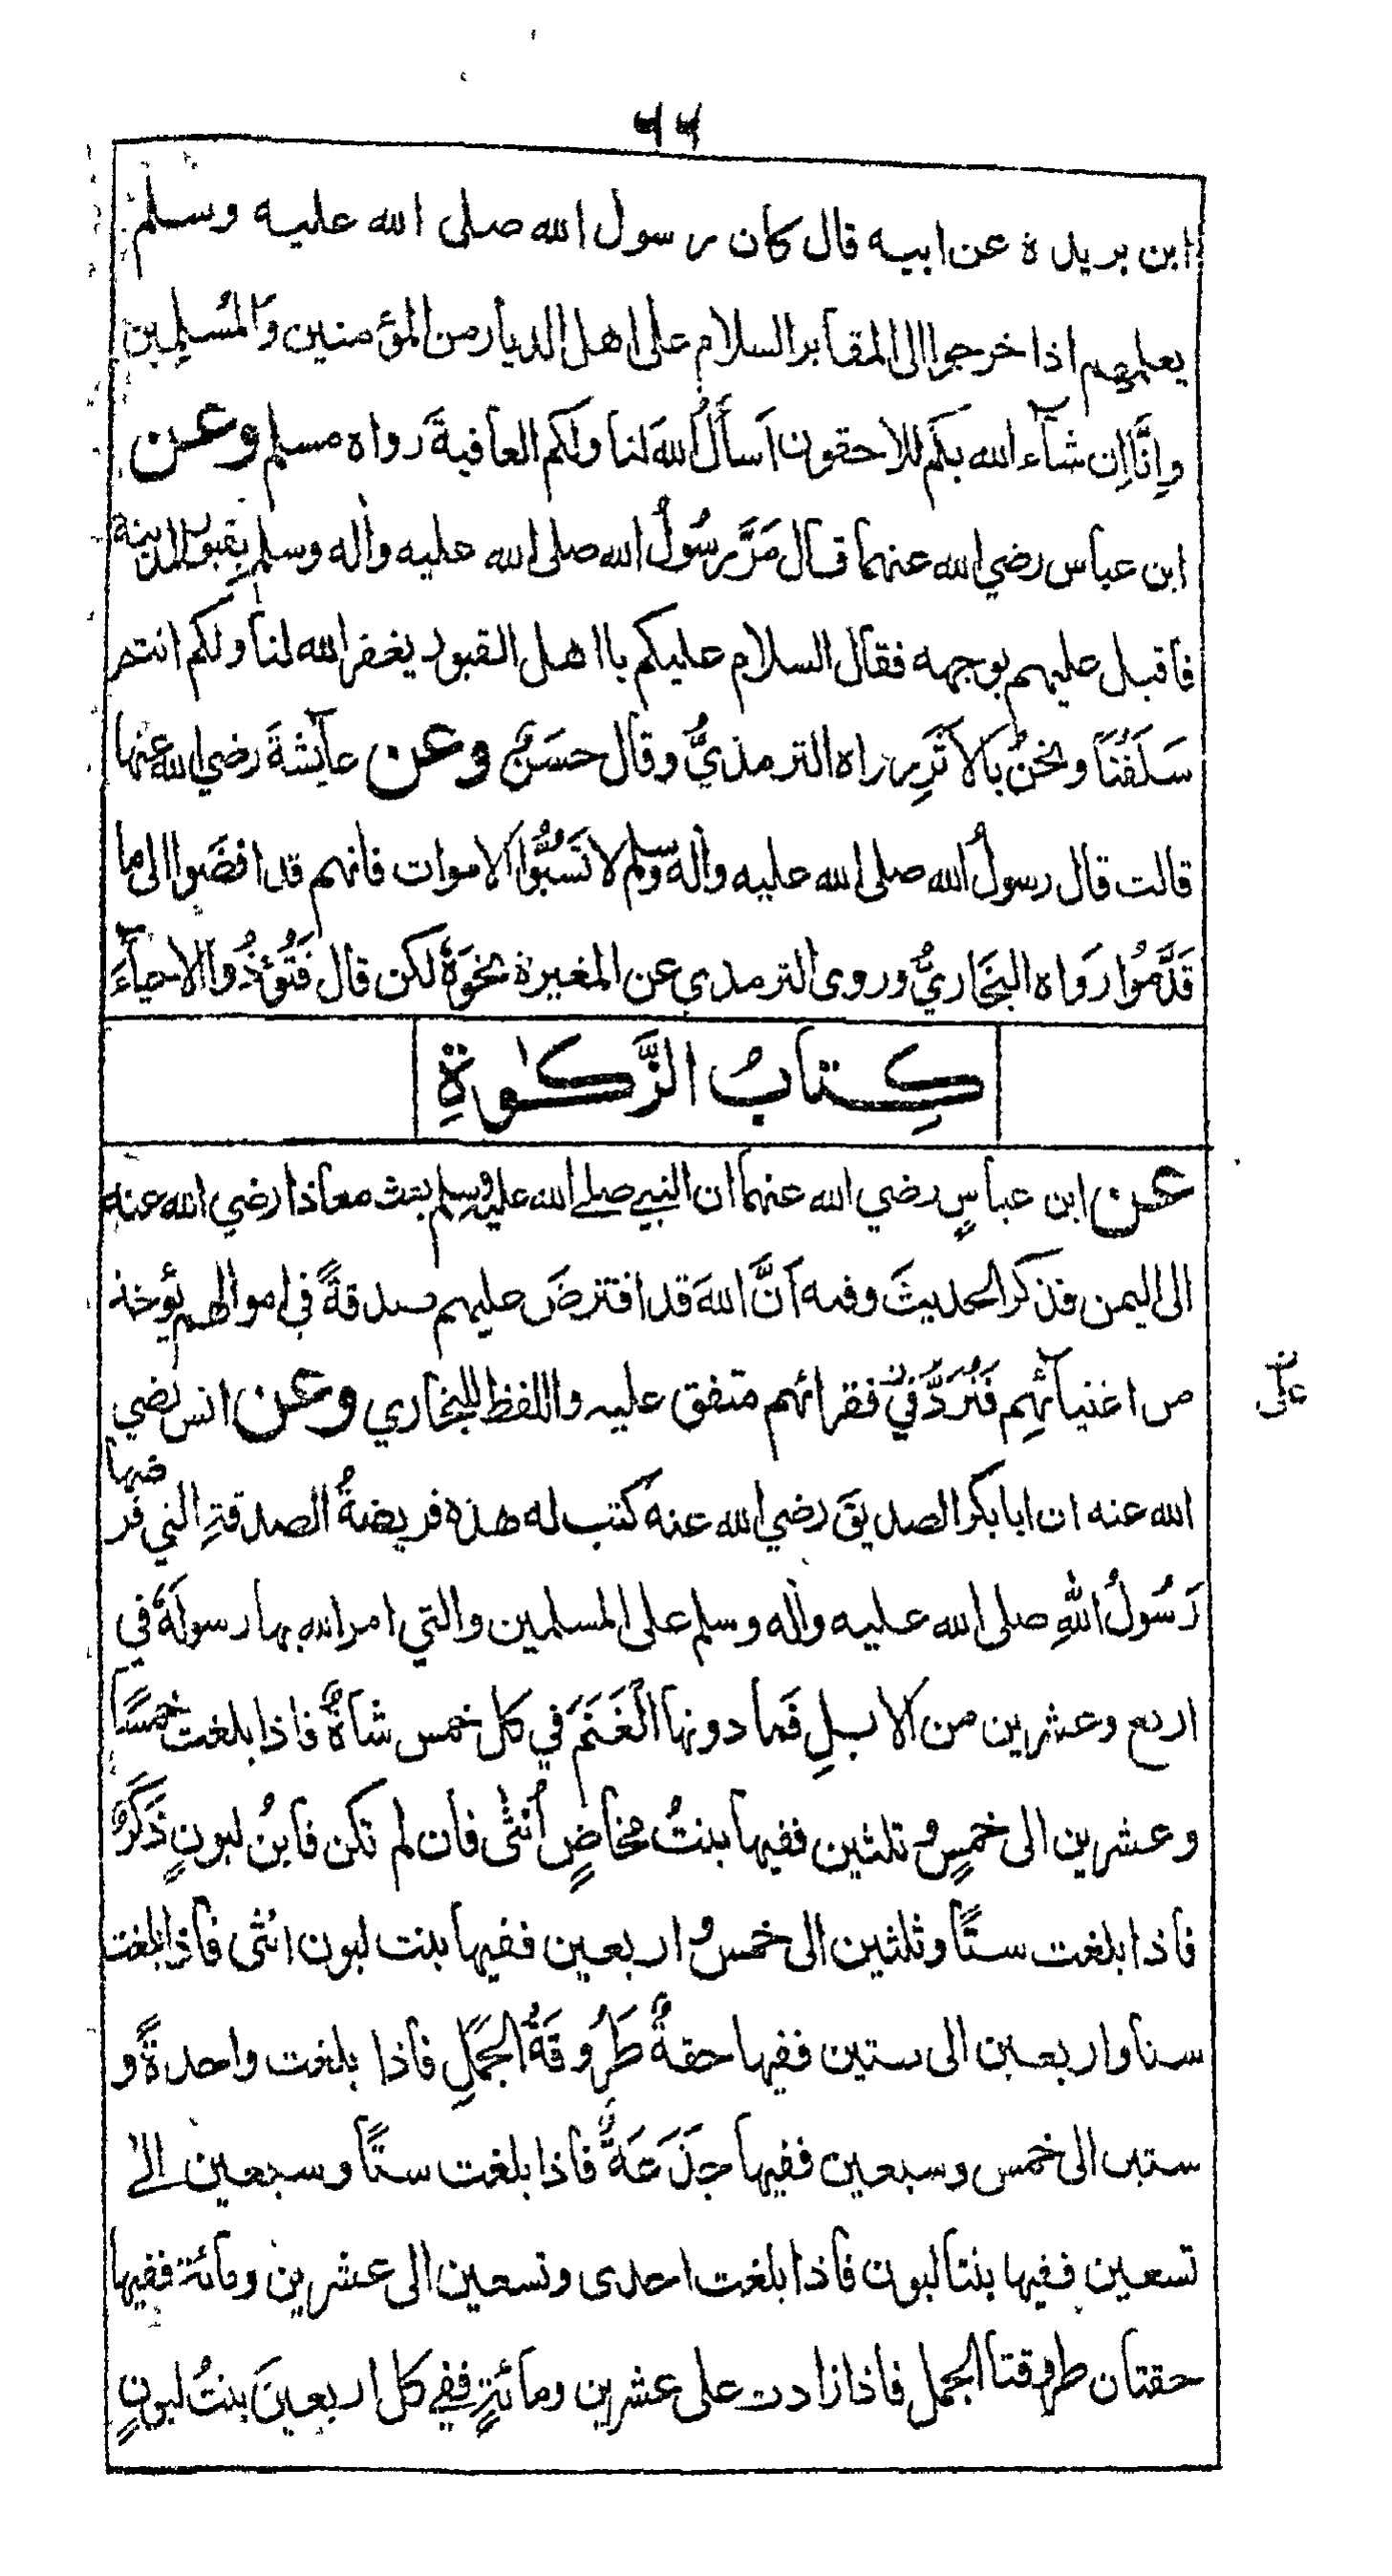 ٦٦
ابن بريدة عن ابيه قال كان رسول الله صلى الله عليه وسلم
يعلمهم اذا خرجوا الى المقابر السلام على اهل الديار من المؤمنين وَالمُسلِمِين
وِاِنَّا اِن شآء الله بكُم للاحقون اَسأَلُ اللهَ لنا ولكم العافيةَ رواه مسلم وعن
ابن عباس رضي الله عنهما قال مَرَّ رسُولُ الله صلى الله عليه واٰله وسلم بِقبورِ المدينة
فاقبل عليهم بوجهه فقال السلام عليكم يا اهل القبور يغفر الله لنا ولكم انتم
سَلَفُنَا ونحنُ بالاَثَرِ رواه الترمذيُّ وقال حسَنٌ وعن عآيشةَ رضي الله عنها
قالت قال رسولُ الله صلى الله عليه واٰله وسلم لا تَسُبُّوا الاموات فانهم قد افضَوا الى ما
قَدَّمُوا رَواه البخَاريُّ وروى الترمذي عن المغيرة نحوَهٗ لكن قال فَتُؤذُوا الاحيآءَ
كِتابُ الزَّكٰوةِ
عن ابن عباسٍ رضي الله عنهما ان النبي صلى الله عليه وسلم بعث معاذا رضي الله عنه
الى اليمن فذكر الحديثَ وفيه اَنَّ اللهَ قد افترضَ عليهم صدقةً في اموالهم يُؤخذ
من اغنيآئهِم فَتُرَدُّ فيْ فقرائهم متفق عليه واللفظ للبخاري وعن انس رضي
على
الله عنه ان ابا بكر الصديقَ رضي الله عنه كتب له هذه فريضةُ الصدقةِ التي فرضها
رَسُولُ اللهِ صلى الله عليه واٰله وسلم على المسلمين والتي امر الله بها رسولهٗ في
اربع وعشرين من الابلِ فَما دونها الغَنَمُ في كل خمس شاةٌ فاذا بلغت خمسًا
وعشرين الى خمسٍ وثلثين ففيها بنتُ مخاضٍ اُنثٰى فان لم تكن فابنُ لبونٍ ذَكَرٌ
فاذا بلغت ستًّا وثلثين الى خمس واربعين ففيها بنت لبون انثى فاذا بلغت
ستا واربعين الى ستين ففيها حقةٌ طَرُوقَةُ الجَمَلِ فاذا بلغت واحدةً و
ستين الى خمس وسبعين ففيها جَذَعَةٌ فاذا بلغت ستًّا وسبعين الى
تسعين ففيها بنتا لبون فاذا بلغت احدى وتسعين الى عشرين ومائة ففيها
حقتان طروقتا الجمل فاذا زادت على عشرين ومائةٍ ففي كل اربعينَ بنتُ لبونٍ